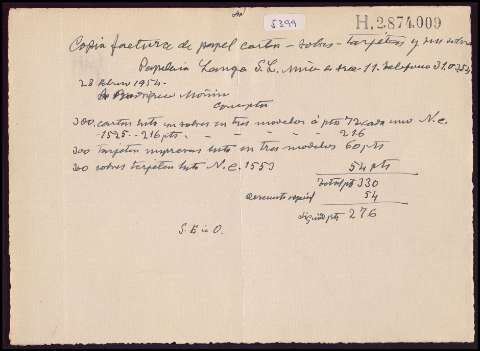 5399
H.2.874.009
Copia factura de papel cartas - sobres - tarjetas y sus sobres
Papeleria Lange S.L. 11. Telefono
28 1954.
Moñiz
Conceptos
300. cartas sobres en tres modelos á pts 72 cada uno N.C.
1525 - 216 pts - - - - 216
300 tarjetas impresas en tres modelos 60 pts
300 sobres tarjetas N.C. 1553 54 pts
Total pts 330
descuento 54
Liquido pts 276
S. E. ú O.